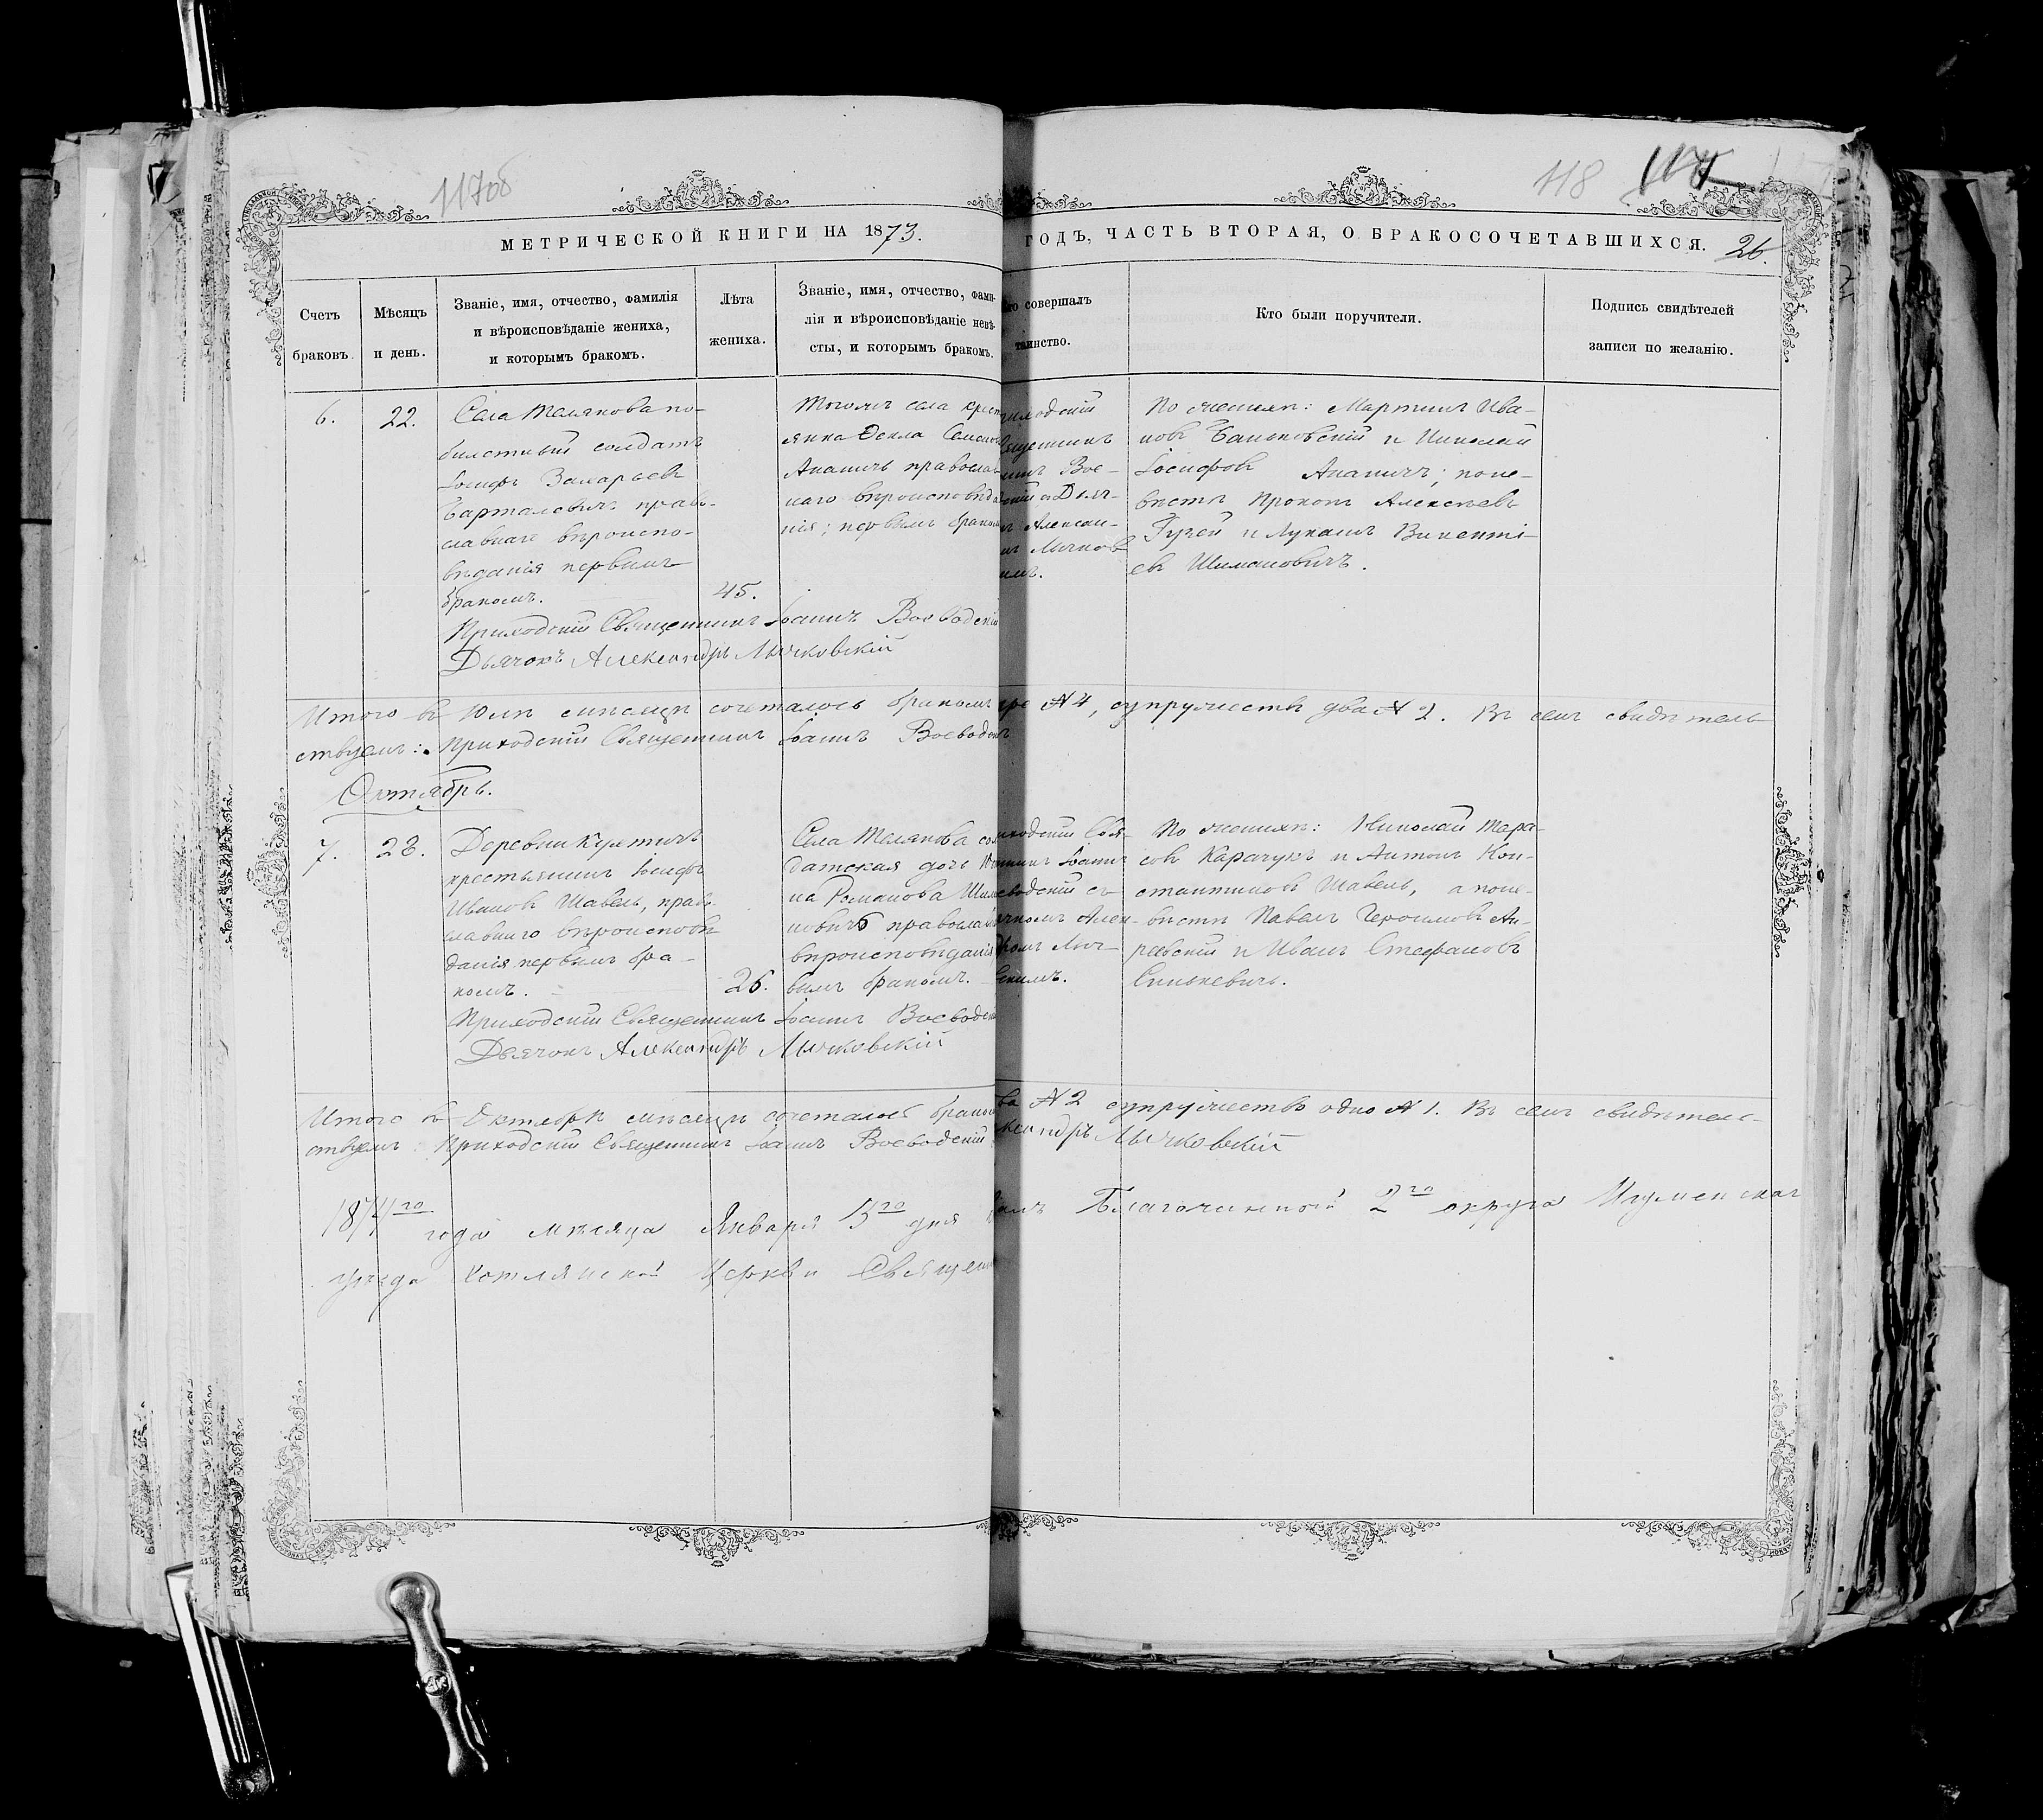 117об
118
МЕТРИЧЕСКОЙ КНИГИ НА 1873.
ГОДЪ, ЧАСТЬ ВТОРАЯ, О БРАКОСОЧЕТАВШИХСЯ. 26.
Счетъ
браковъ.
Мѣсяцъ
и день.
Званіе, имя, отчество, фамилія
и вѣроисповѣданіе жениха,
и которымъ бракомъ.
Лѣта
жениха.
Званіе, имя, отчество, фами-
лія и вѣроисповѣданіе невѣ-
сты, и которымъ бракомъ.
совершалъ
таинство.
Кто были поручители.
Подпись свидѣтелей
записи по желанію.
6.
22.
Села Телякова по-
билетный солдатъ
Іосифъ Захарьевъ
Барталевичъ прав-
славнаго вѣроиспо-
вѣданія первымъ
бракомъ.
45.
Тогожъ села крест
янка Ѳекла Семенов
Ананичъ православ
наго вѣроисповѣда
нія; первымъ браком
Вое-
и Дьяч-
Алексан-
Мычков
По женихѣ: Мартинъ Ива-
новъ Баньковскій и Николай
Іосифовъ Ананичъ; поне-
вѣстѣ Прокопъ Алексѣевъ
Гузей и Лукашъ Викенті-
евъ Шимановичъ.
Приходскій Священникъ Іоаннъ Воеводскій
Дьячокъ Александръ Мычковскій
Итого въ Юлѣ мѣсяцѣ сочеталось бракомъ № 4, супружествъ два № 2. Въ семъ свидѣтель
ствуемъ: Приходскій Священникъ Іоаннъ Воеводск
Октябрь.
7.
28.
Деревни Куктичъ
крестьянинъ Іосифъ
Ивановъ Шавель, прав-
славнаго вѣроисповѣ
данія первымъ бра-
комъ.
26.
Села Телякова сол
датская дочь
на Романова Шима
новичъ православ
вѣроисповѣданія
вымъ бракомъ.
Свя-
Іоанн
съ
Алек-
Мыч-
скимъ.
По женихѣ: Николай Тара-
совъ Карачунъ и Антонъ Кон-
стантиновъ Шавель, а поне-
вѣстѣ Павелъ Героимовъ Ан-
ревскій и Иванъ Стефановъ
Синькевичъ.
Приходскій Священникъ Іоаннъ Воеводскій
Дьячокъ Александръ Мычковскій
Итого въ Октябрѣ мѣсяцѣ сочеталось бракомъ № 2 супружество одно № 1. Въ семъ свидѣтель-
ствуемъ: Приходскій Священникъ Іоаннъ Воеводскій Александръ Мычковскій
1874го года мѣсяца Января 15го дня Благочинной 2го округа Игуменскаг
уѣзда Хотлянской Церкви Священ